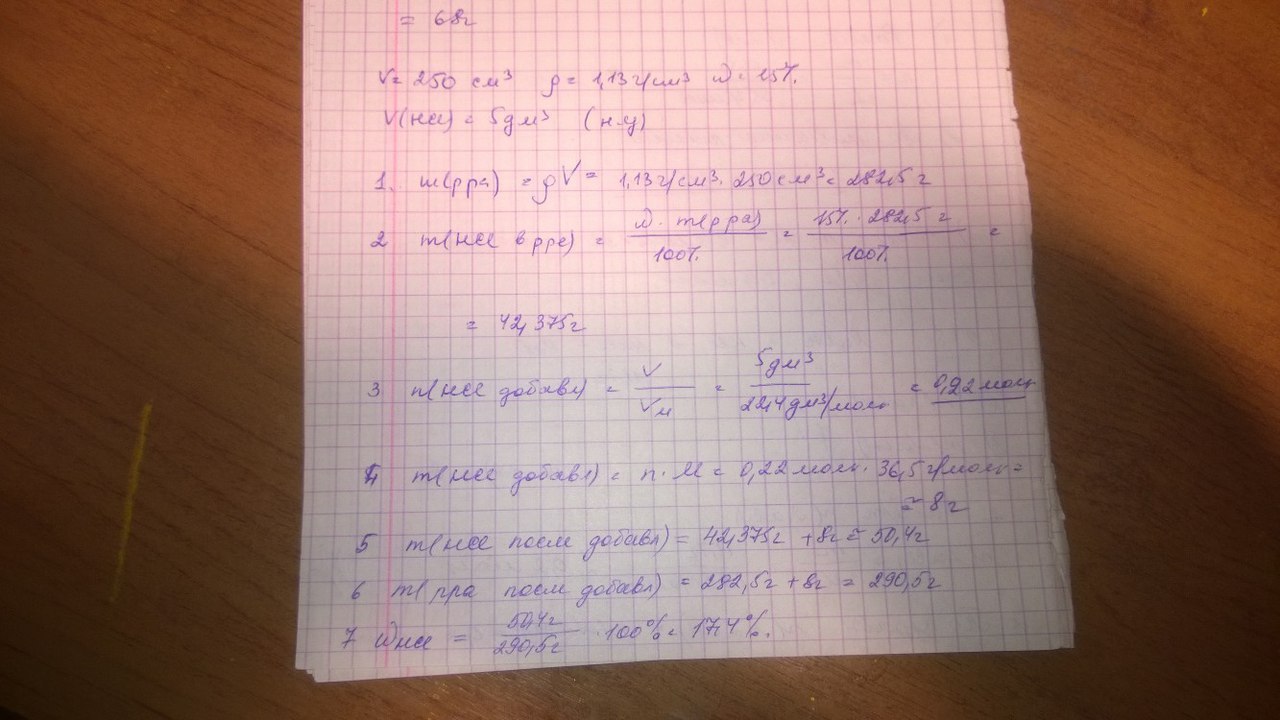 = 68г
V= 250 см³ ρ= 1,13 г/см³ ω = 15%.
V(HCl) = 5дм³ (н.у)
1. m(рра) = ρV = 1,13г/см³ · 250 см³ = 282,5 г
2 m(HCl в рре) = ω · m(рра) / 100% = 15% · 282,5 г / 100% =
= 42,375г
3 n(HCl добавл) = V / Vм = 5дм³ / 22,4дм³/моль = 0,22 моль
4 m(HCl добавл) = n · M = 0,22 моль · 36,5 г/моль =
≈ 8г
5 m(HCl после добавл) = 42,375г + 8г ≈ 50,4г
6 m(рра после добавл) = 282,5г + 8г = 290,5г
7 ωHCl = 50,4г / 290,5г · 100% = 17,4%.